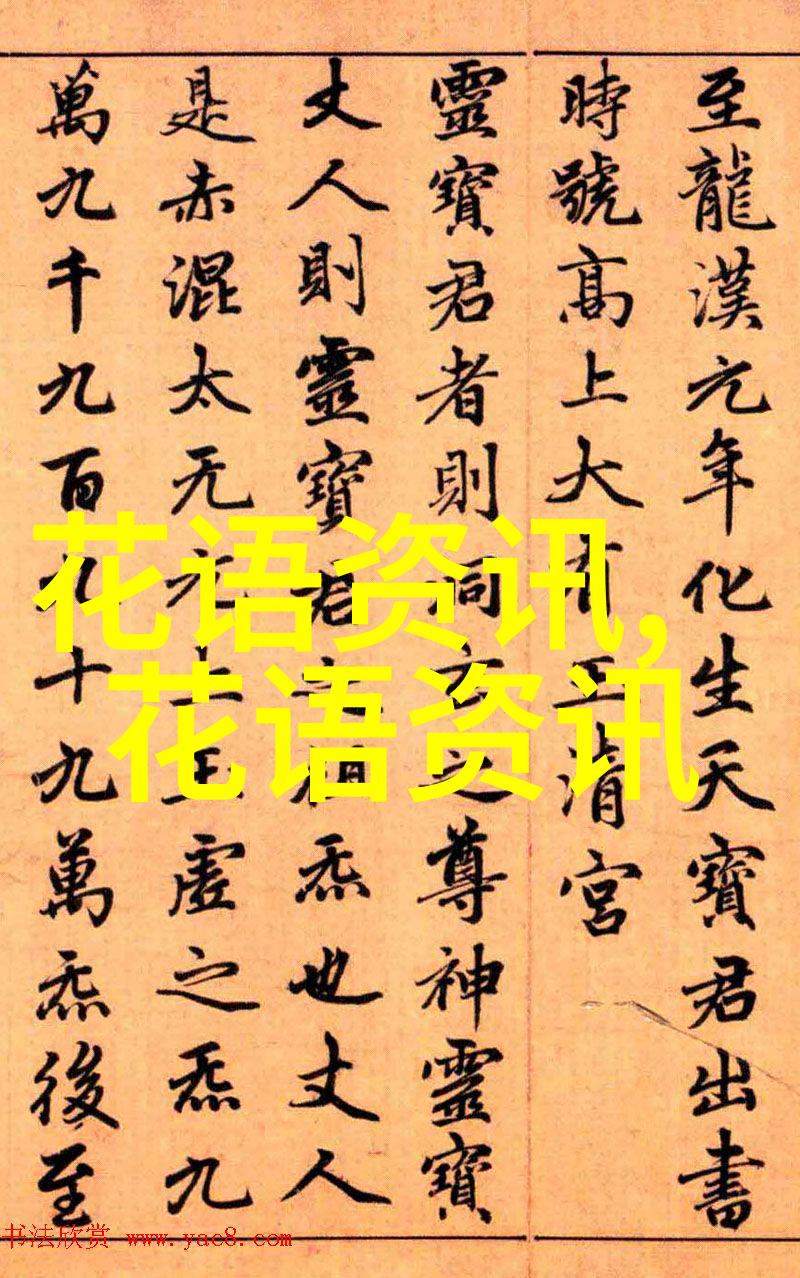 至龍漢元年化生天寶君出書
時號高上大有玉清宮
靈寶君者則洞玄之尊神靈寶
丈人則靈寶君之祖炁也丈人
是赤混太无元上玉虛之炁九
萬九千九百九十九萬炁後至
花语资讯,
花语资讯
书法欣赏 www.yac8.com